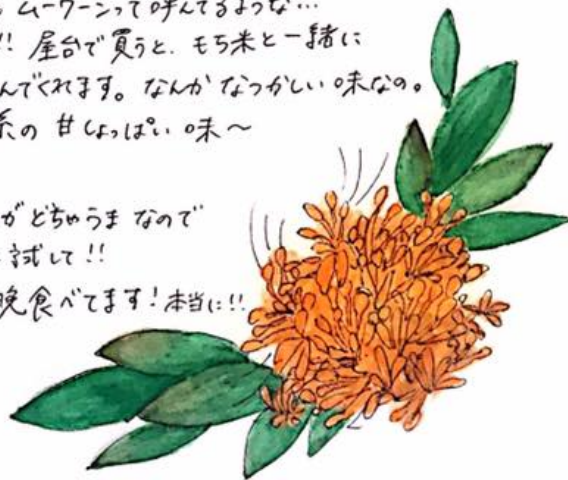 ムーワーンって呼んでるような…
!! 屋台で買うと、もち米と一緒に
んでくれます。なんか なつかしい 味なの。
系の 甘しょっぱい 味～
がどちゃうま なので
試して!!
晩食べてます!本当に!!